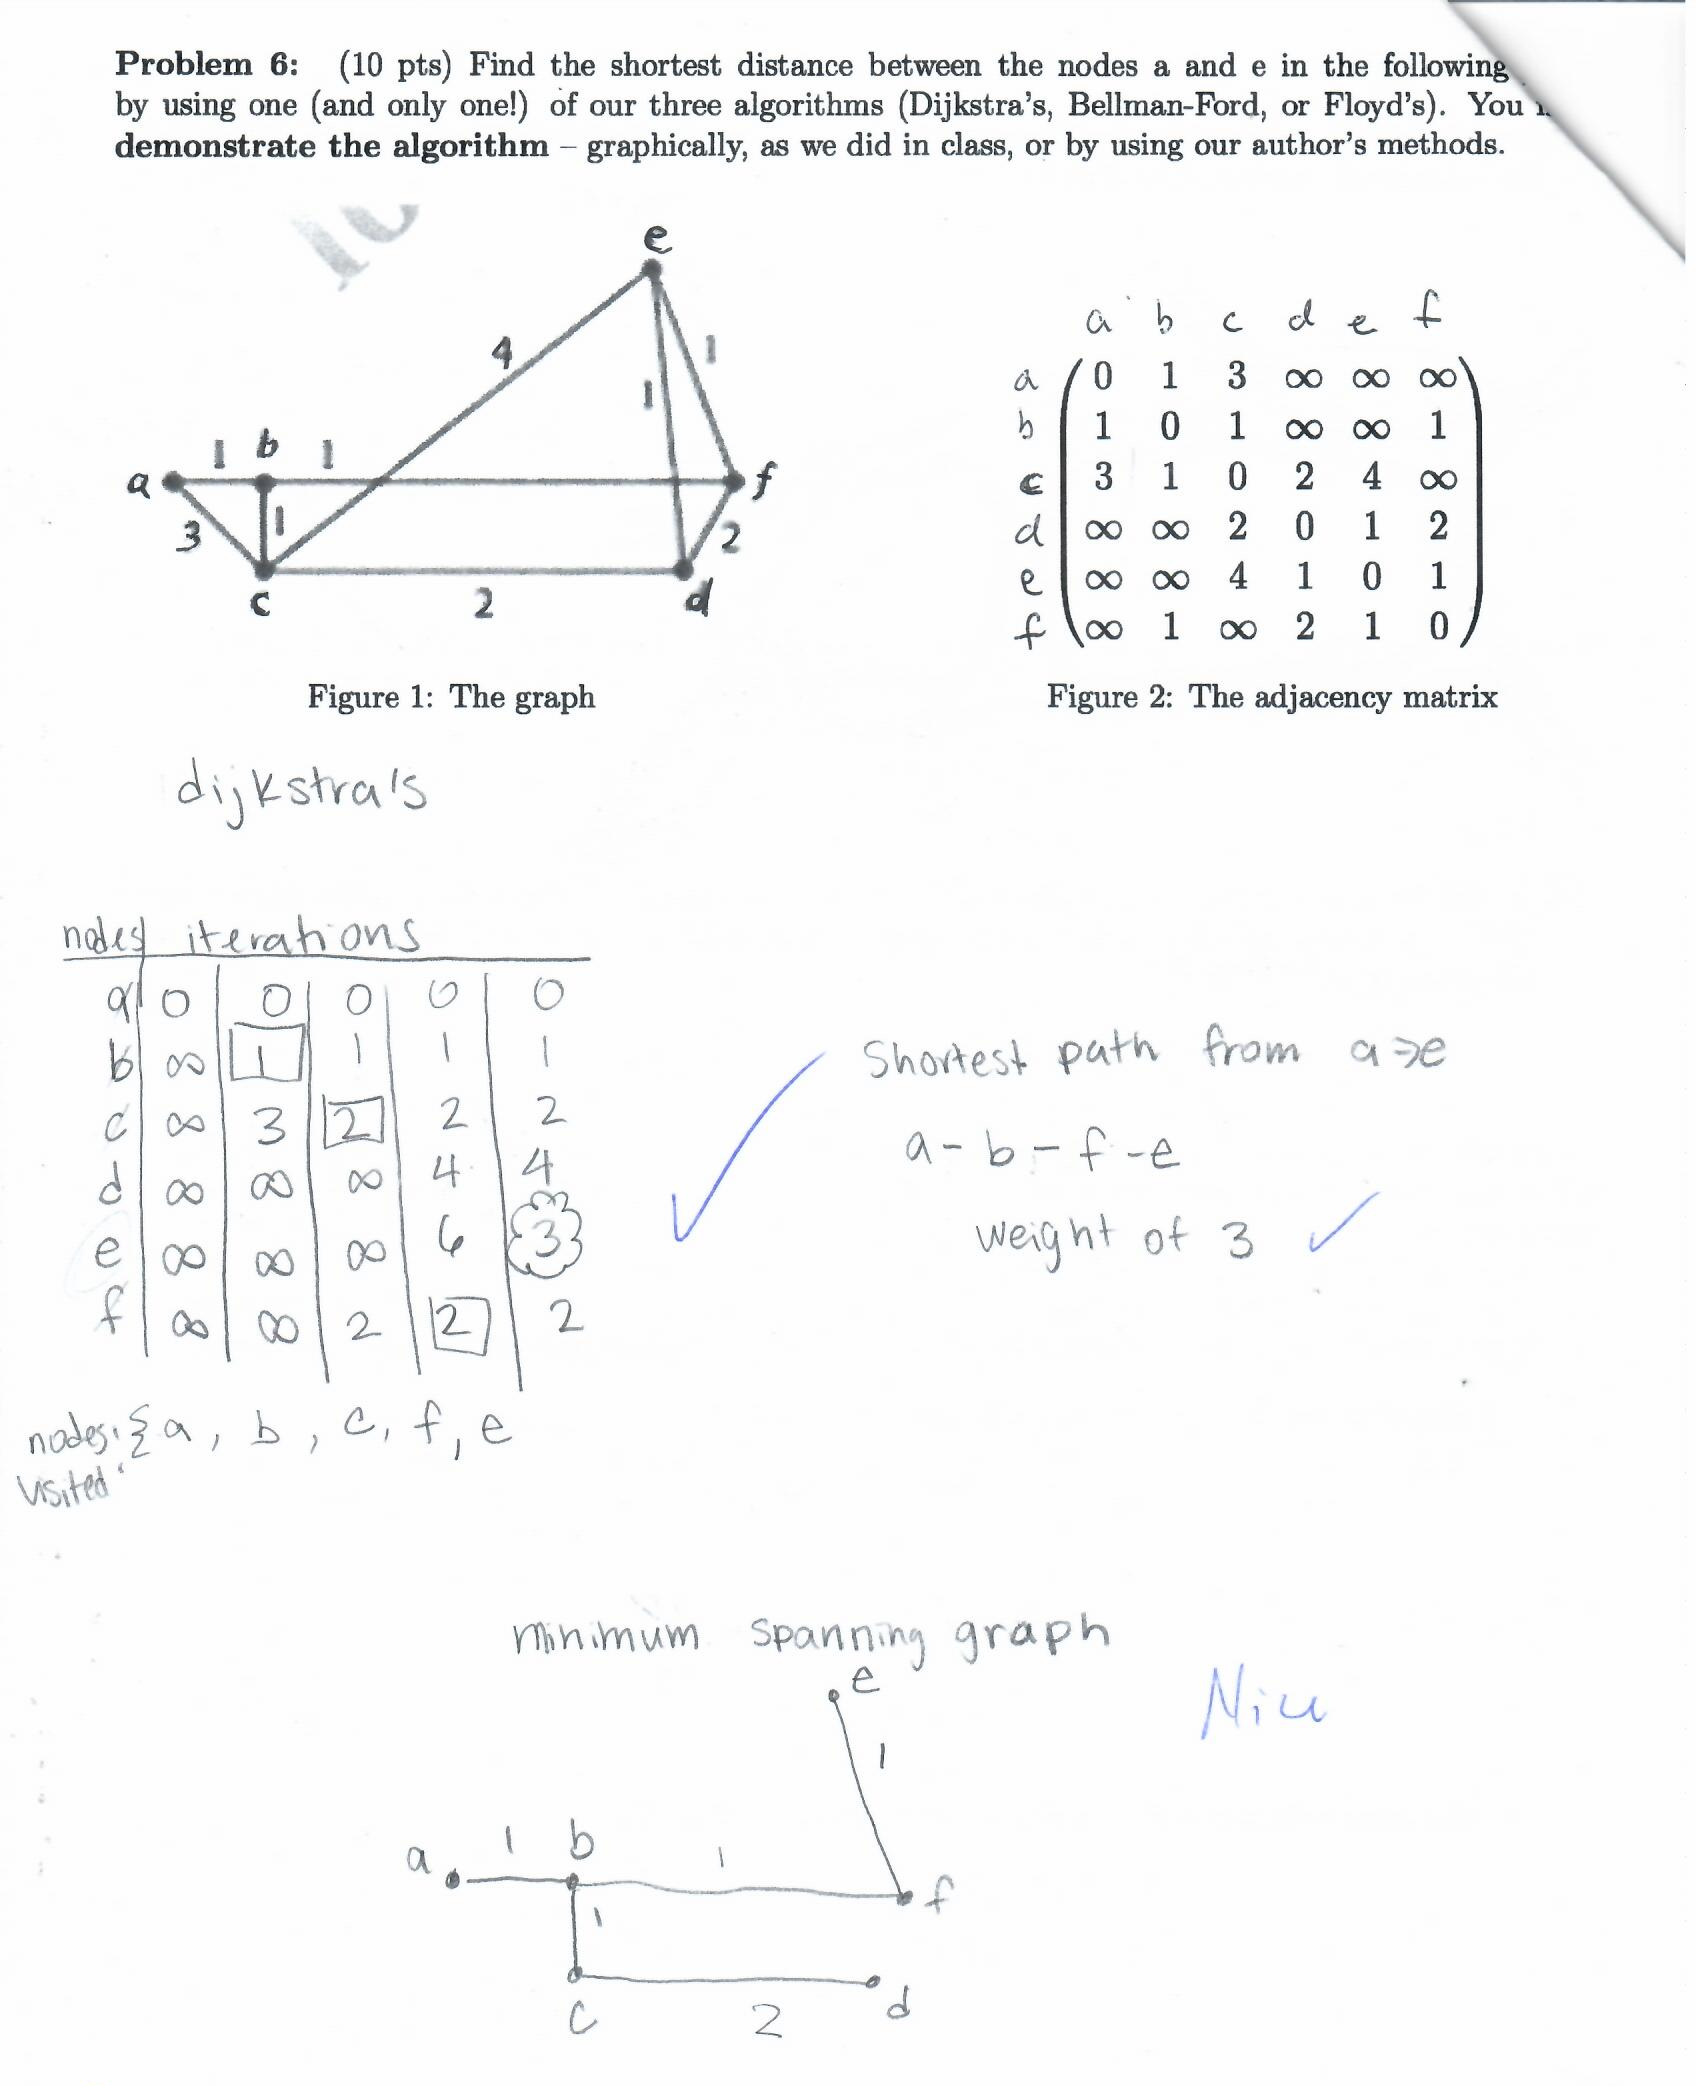 Problem 6: (10 pts) Find the shortest distance between the nodes a and e in the following
by using one (and only one!) of our three algorithms (Dijkstra's, Bellman-Ford, or Floyd's). You
demonstrate the algorithm – graphically, as we did in class, or by using our author's methods.
10
e
4
1
1
1 b 1
a
f
3
1
2
c
2
d
a b c d e f
a 0 1 3 ∞ ∞ ∞
b 1 0 1 ∞ ∞ 1
c 3 1 0 2 4 ∞
d ∞ ∞ 2 0 1 2
e ∞ ∞ 4 1 0 1
f ∞ 1 ∞ 2 1 0
Figure 1: The graph
Figure 2: The adjacency matrix
dijkstra's
nodes iterations
a 0 0 0 0 0
b ∞ 1 1 1 1
c ∞ 3 2 2 2
d ∞ ∞ ∞ 4 4
e ∞ ∞ ∞ 6 3
f ∞ ∞ 2 2 2
nodes: { a, b, c, f, e
visited
Shortest path from a→e
a - b - f - e
weight of 3
minimum spanning graph
Nice
e
1
a 1 b 1
f
1
c 2 d